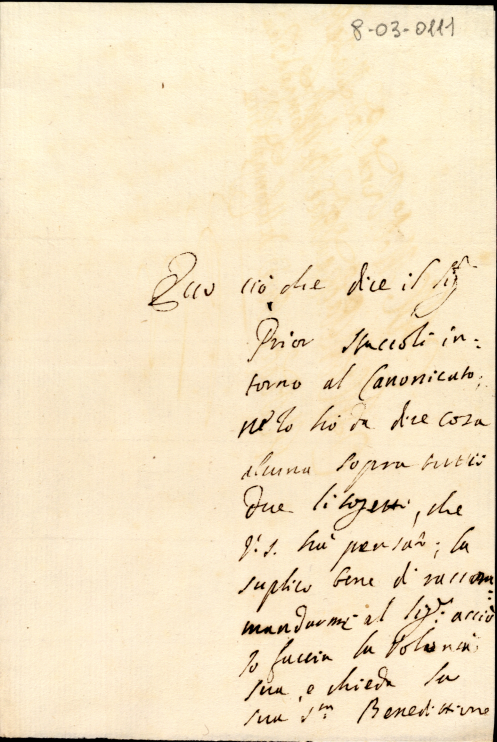 8-03-0111
Ecco ciò che dice il Sig.r
Prior Staccoli in=
torno al Canonicato,
nè Io hò da dire cosa
alcuna sopra tutti
due li sogetti, che
V. S. hà pensato; la
suplico bene di raccom=
mandarmi al Sig.re acciò
Io faccia la Volontà
sua, e chieda la
sua S.ma Benedittione